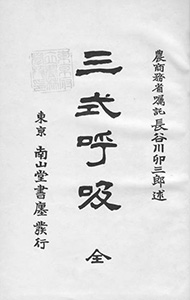 農商務省嘱託 長谷川卯三郎述
三式呼吸 全
東京 南山堂書店發行